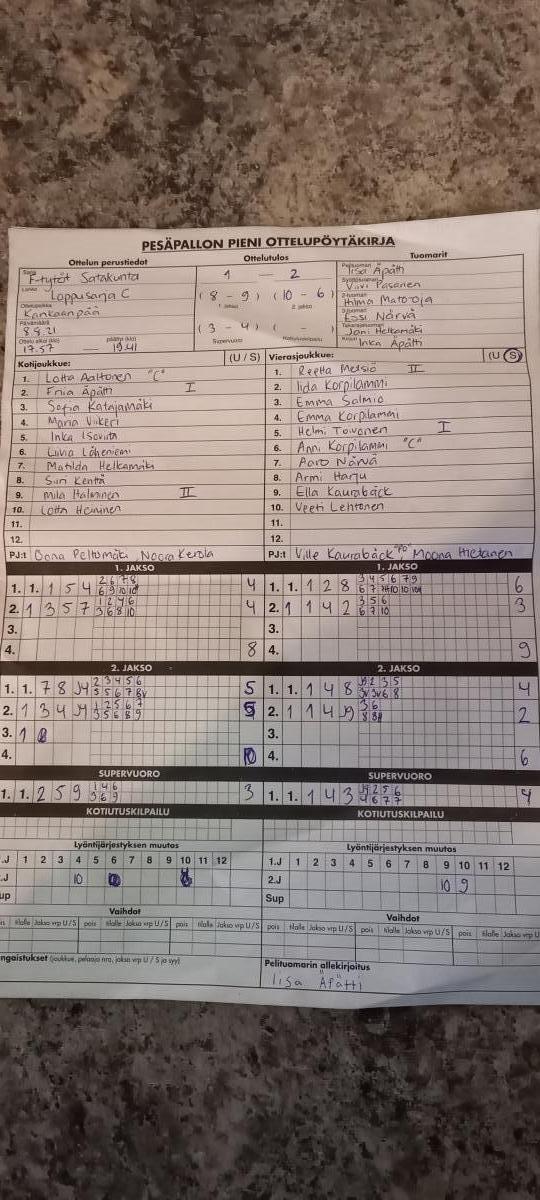 PESÄPALLON PIENI OTTELUPÖYTÄKIRJA
Ottelun perustiedot Ottelutulos Tuomarit
Sarja F-tytöt Satakunta
Lohko Loppusarja C
Ottelupaikka Kankaanpää
Päivämäärä 8.8.21
Ottelu alkoi (klo) 17.57 päättyi (klo) 19.41
1 — 2
( 8 - 9 ) ( 10 - 6 )
1. jakso 2. jakso
( 3 - 4 ) ( - )
Supervuoro Kotiutuskilpailu
Pelituomari Iisa Äpätti
Syöttötuomari Viivi Pasanen
2-tuomari Hilma Mato-oja
3-tuomari Essi Närvä
Takarajatuomari Joni Helkamäki
Kirjuri Inka Äpätti
Kotijoukkue: (U / S)
1. Lotta Aaltonen "C"
2. Enia Äpätti I
3. Sofia Katajamäki
4. Maria Viikeri
5. Inka Isoviita
6. Livia Löheniemi
7. Matilda Helkamäki
8. Siiri Kenttä
9. Mila Halminen II
10. Lotta Heininen
11.
12.
PJ:t Oona Peltomäki, Noora Kerola
Vierasjoukkue: (U / S)
1. Reetta Metsiö II
2. Iida Korpilammi
3. Emma Salmio
4. Emma Korpilammi
5. Helmi Toivonen I
6. Anni Korpilammi "C"
7. Aaro Närvä
8. Armi Harju
9. Ella Kauraback
10. Veeti Lehtonen
11.
12.
PJ:t Ville Kaurabäck "PJ", Moona Hietanen
1. JAKSO
1. 1. 1 5 4 2 6 7 8 4
6 9 10 10
2. 1 3 5 7 1 2 4 6 4
3 6 8 10
3.
4. 8
1. JAKSO
1. 1. 1 2 8 3 4 5 6 7 9 6
2. 1 1 4 2 3 5 6 3
6 7 10
3.
4. 9
2. JAKSO
1. 1. 7 8 J4 2 3 4 5 6 5
5 5 6 7 8v
2. 1 3 4 J9 1 2 5 6 7 5
3 5 6 8 9
3. 1
4. 10
2. JAKSO
1. 1. 1 4 8 J9 2 3 5 4
3v 3v 6 8
2. 1 1 4 J9 3 6 2
3.
4. 6
SUPERVUORO
1. 1. 2 5 9 1 4 6 3
3 6 9
SUPERVUORO
1. 1. 1 4 3 J9 2 5 6 4
4 6 7 7
KOTIUTUSKILPAILU
KOTIUTUSKILPAILU
Lyöntijärjestyksen muutos
.J 1 2 3 4 5 6 7 8 9 10 11 12
.J 10
up
Lyöntijärjestyksen muutos
1.J 1 2 3 4 5 6 7 8 9 10 11 12
2.J 10 9
Sup
Vaihdot
is tilalle Jakso vrp U / S pois tilalle Jakso vrp U / S pois tilalle Jakso vrp U / S
Vaihdot
pois tilalle Jakso vrp U / S pois tilalle Jakso vrp U / S pois tilalle Jakso vrp U
ngaistukset (joukkue, pelaaja nro, jakso vrp U / S ja syy)
Pelituomarin allekirjoitus
Iisa Äpätti